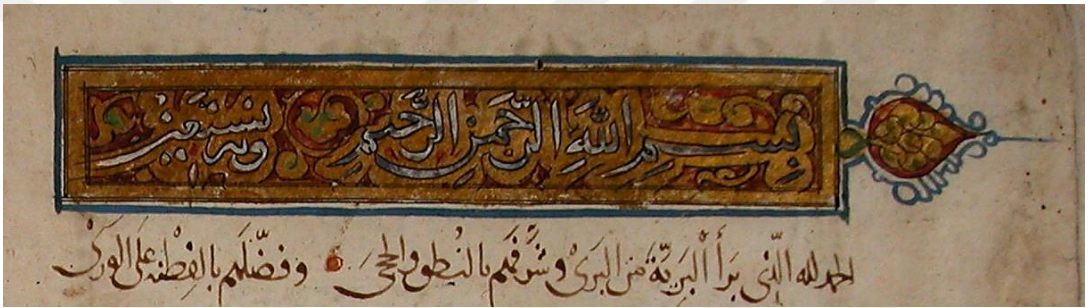 بسم الله الرحمن الرحيم وبه نستعين
الحمد لله الذي برأ البرية من البرى وشرفهم بالنطق والحجى وفضلهم بالفطنة على الورى